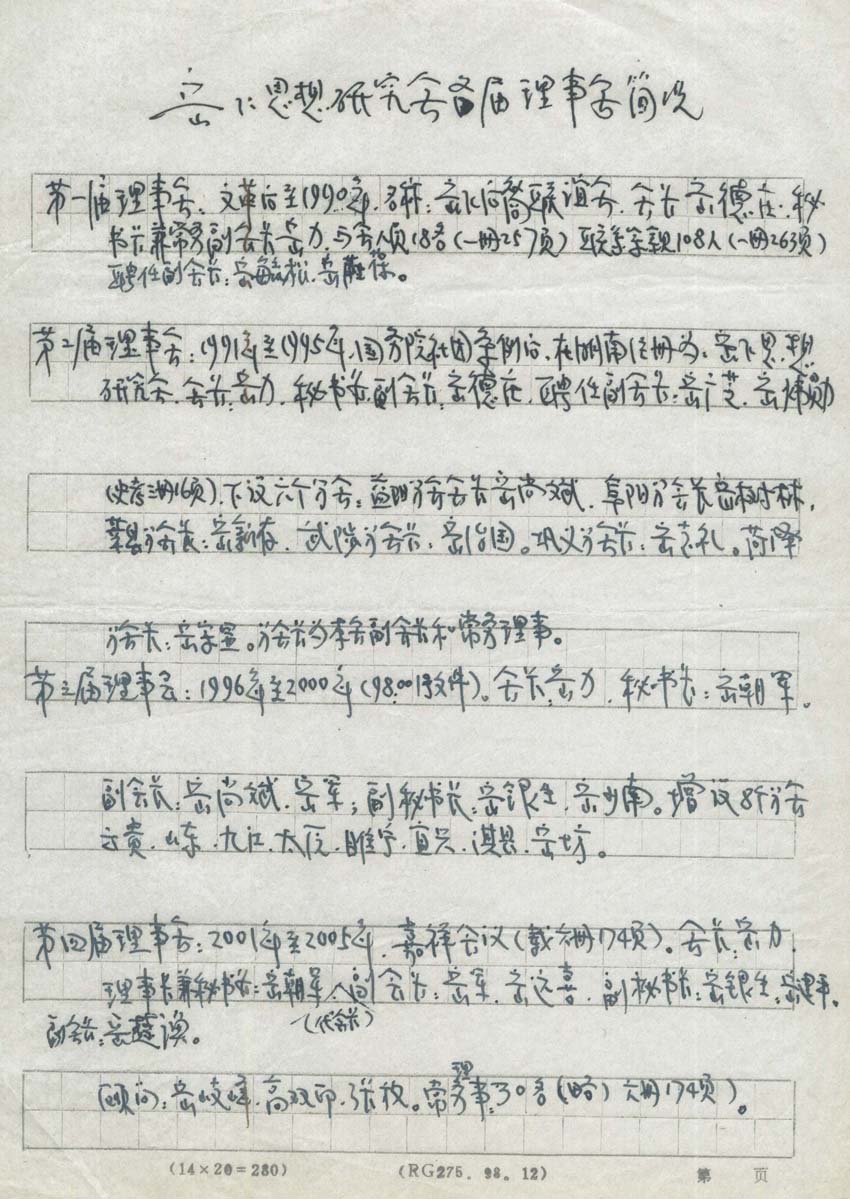 岳飞思想研究会各届理事会简况
第一届理事会：文革后至1990年，名称：岳飞后裔联谊会，会长岳德庄，秘
书长兼常务副会长岳力，与会人员18名（一册257页）联系宗亲108人（一册263页）
聘任副会长：岳毓松、岳 保。
第二届理事会：1991年至1995年，国务院社团条例后，在湖南注册为：岳飞思想
研究会，会长：岳力，秘书长，副会长：岳德庄，聘任副会长：岳 芝、岳 勋
（史考三册16页），下设六个分会：益阳分会会长岳尚斌，阜阳分会长岳树林，
叶县分会长：岳新存，武陟分会长：岳治国。巩义分会长：岳志礼。菏泽
分会长：岳 。分会长为本会副会长和常务理事。
第三届理事会：1996年至2000年（98.001号文件）。会长：岳力，秘书长：岳朝军。
副会长：岳尚斌、岳军；副秘书长：岳银生、岳少南。增设8个分会
云贵、山东、九江、太原、睢宁、宜兴、淇县、 坊。
第四届理事会：2001年至2005年，嘉祥会议（载六册174页）。会长：岳力，
理事长兼秘书长：岳朝军，副会长：岳军、岳远喜，副秘书长：岳银生、岳建军，
（代会长）
副会长：岳 。
顾问：岳岐峰、高双印、张放。常务理事：30名（略）六册174页）。
（14×20=280） （RG275．98．12） 第 页